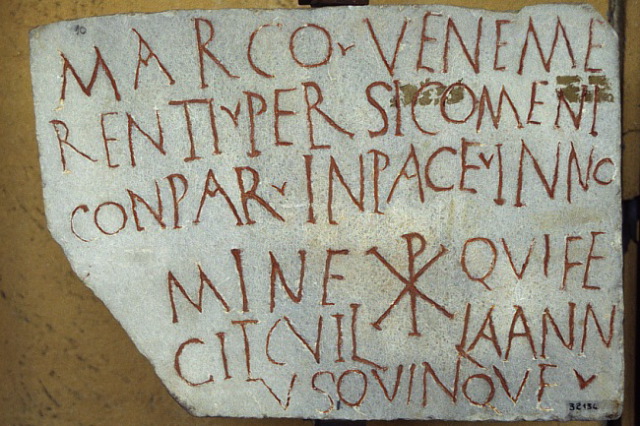 10
MARCO ❦ VENEME
RENTI ❦ PER SICOMENT
CONPAR ❦ INPACE ❦ INNO
MINE ☧ QVIFE
CITCVIL LAANN
VSQVINQVE ❦